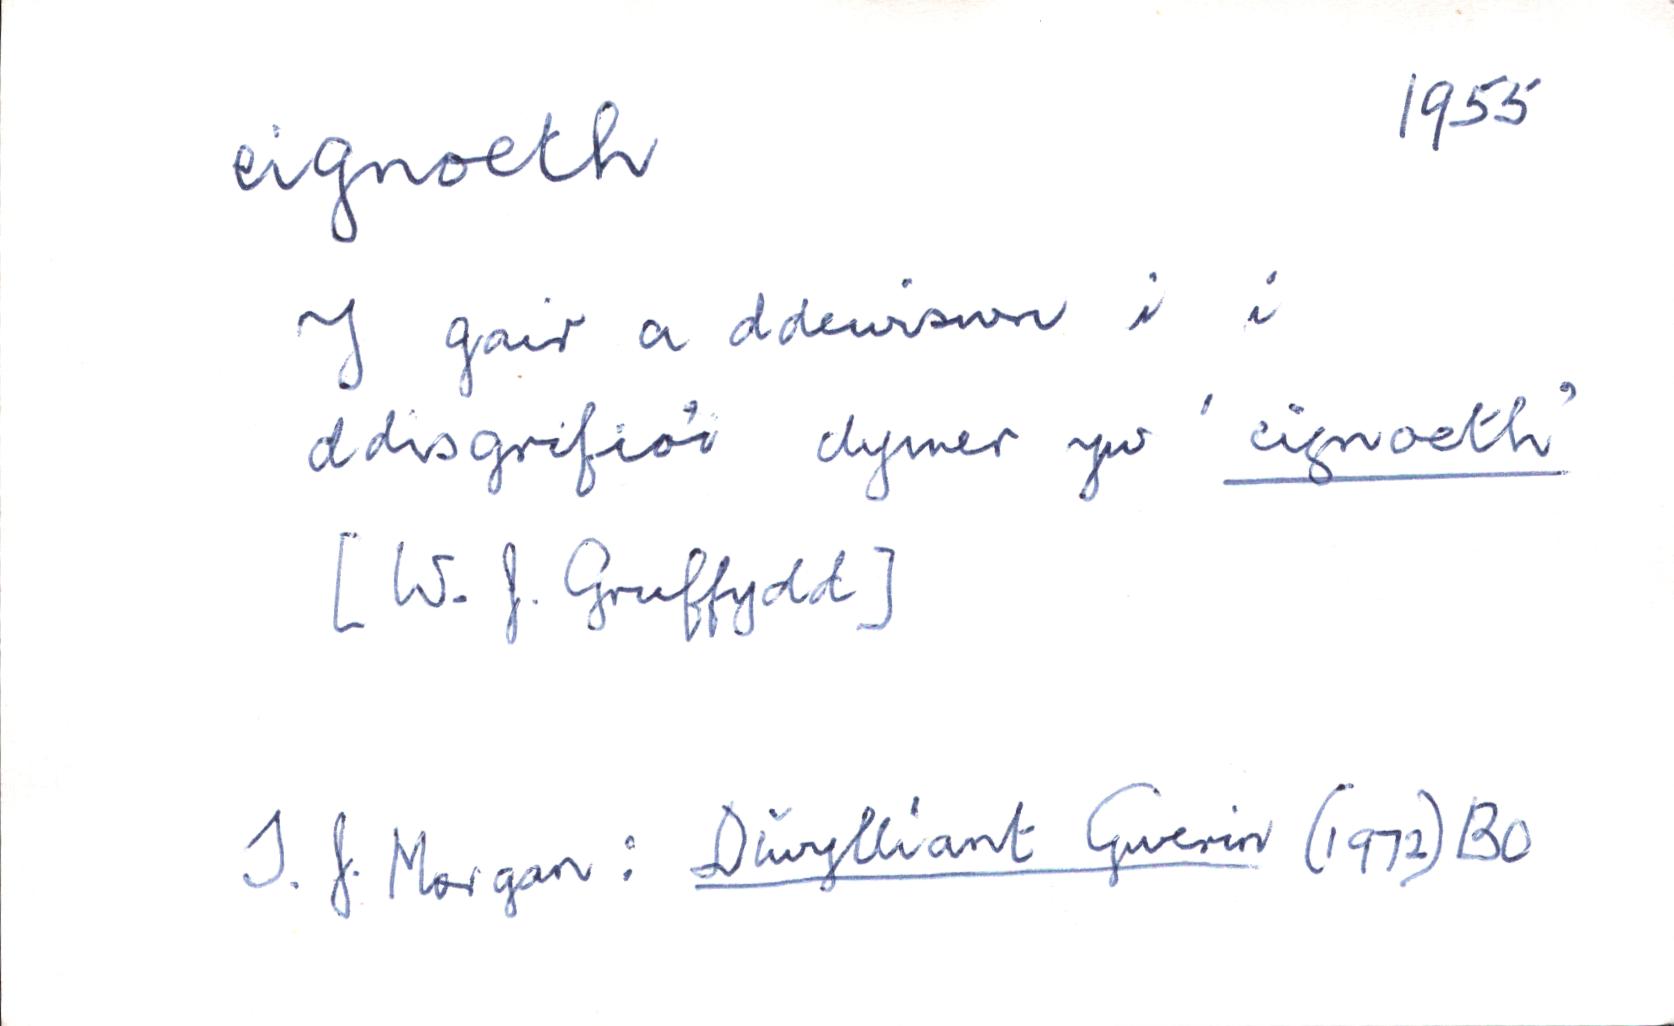 1955
cignoeth
Y gair a ddewiswn i i
ddisgrifio'i dymer yw 'cignoeth'
[W. J. Gruffydd]
T. J. Morgan: Diwylliant Gwerin (1972) 80